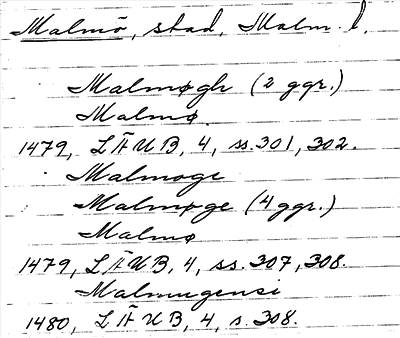 Malmö, stad, Malm. l.
Malmøgh (2 ggr.)
Malmø.
1479, LÄUB, 4, ss. 301, 302.
Malmoge
Malmøge (4 ggr.)
Malmø
1479, LÄUB, 4, ss. 307, 308.
Malmugensi
1480, LÄUB, 4, s. 308.